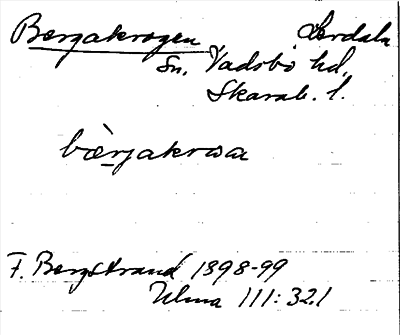 Bergakrogen Lerdala
Sn, Vadsbo hd,
Skarab. l.
bærjakrωa
F. Bergstrand 1898-99
Ulma 111:32.1